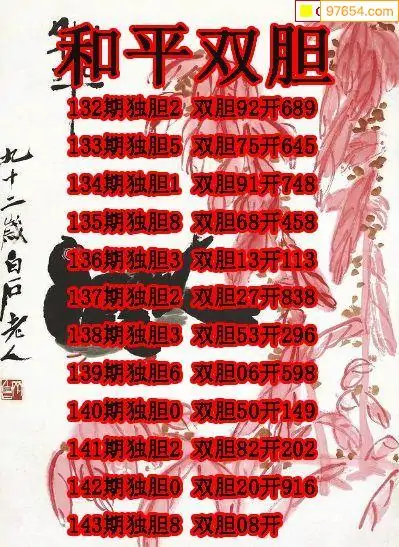 97654.com
和平双胆
132期独胆2 双胆92开689
133期独胆5 双胆75开645
134期独胆1 双胆91开748
135期独胆8 双胆68开458
136期独胆3 双胆13开113
137期独胆2 双胆27开838
138期独胆3 双胆53开296
139期独胆6 双胆06开598
140期独胆0 双胆50开149
141期独胆2 双胆82开202
142期独胆0 双胆20开916
143期独胆8 双胆08开
九十二岁白石老人